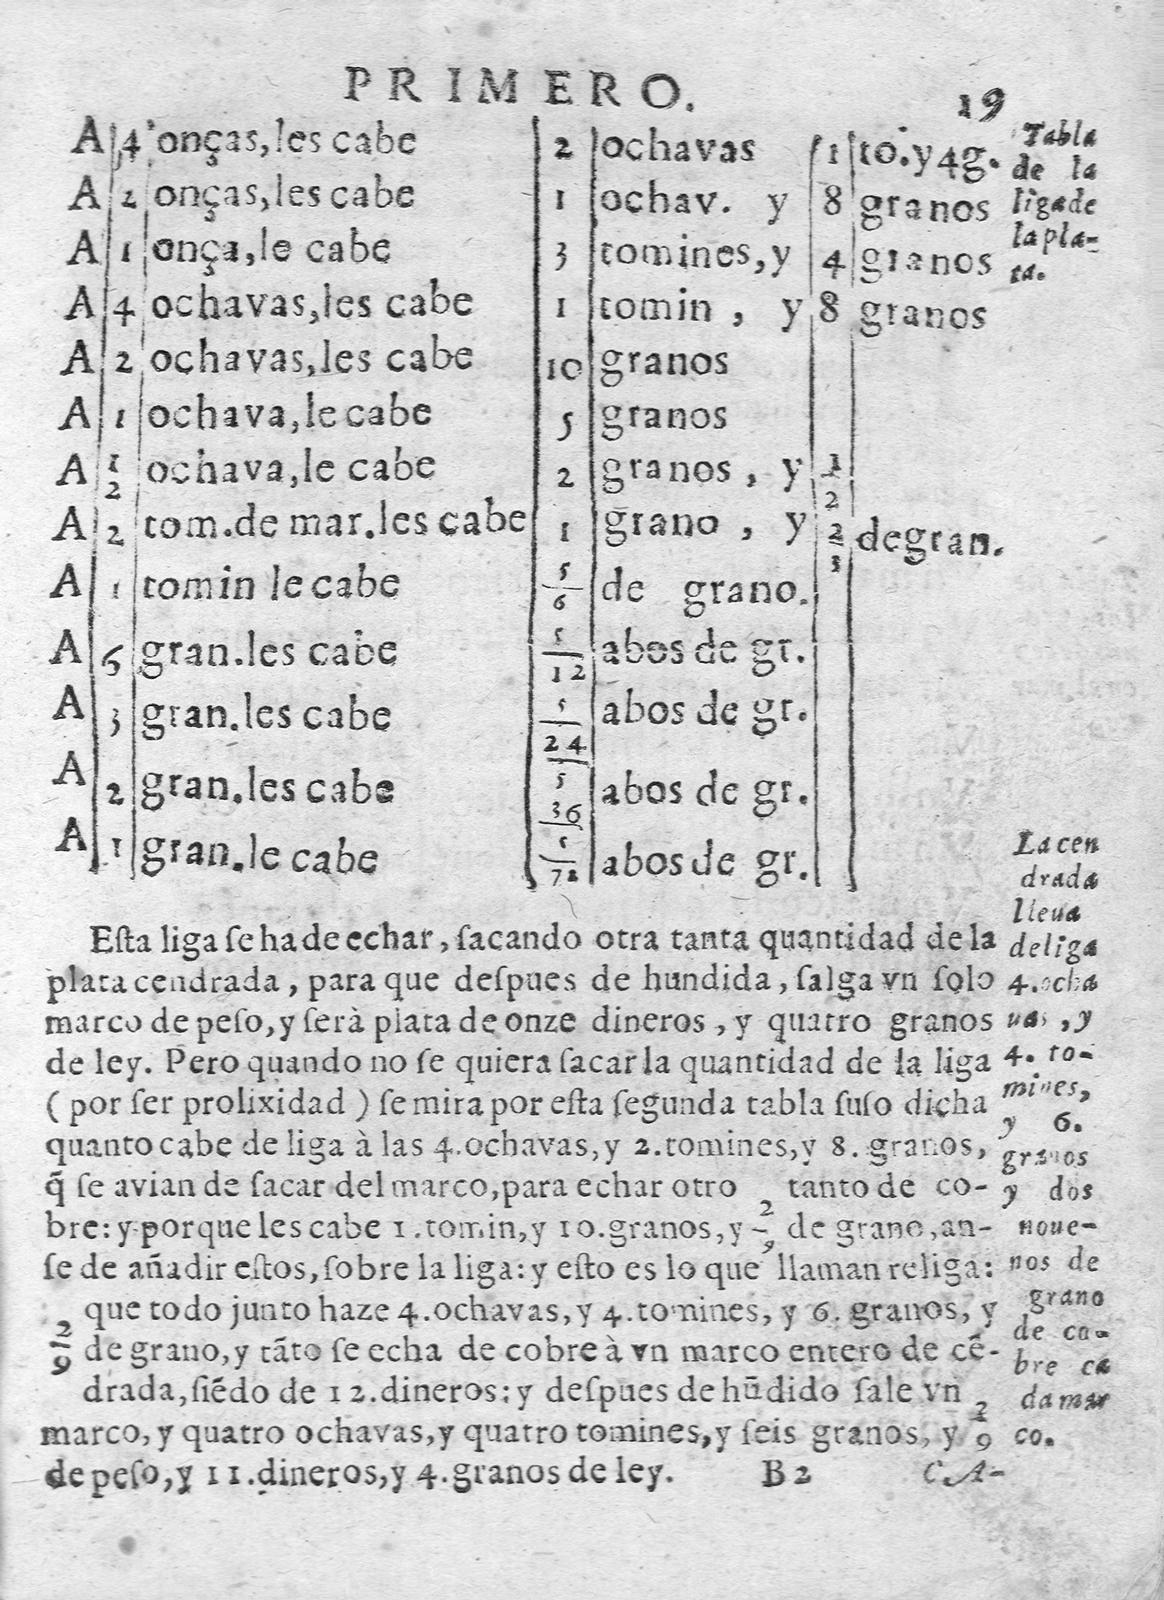 PRIMERO. 19
A 4 onças, les cabe 2 ochavas 1 to. y 4 g.
A 2 onças, les cabe 1 ochav. y 8 granos
A 1 onça, le cabe 3 tomines, y 4 granos
A 4 ochavas, les cabe 1 tomin , y 8 granos
A 2 ochavas, les cabe 10 granos
A 1 ochava, le cabe 5 granos
A 1/2 ochava, le cabe 2 granos , y 1/2
A 2 tom. de mar. les cabe 1 grano , y 2/3 de gran.
A 1 tomin le cabe 5/6 de grano.
A 6 gran. les cabe 5/12 abos de gr.
A 3 gran. les cabe 5/24 abos de gr.
A 2 gran. les cabe 5/36 abos de gr.
A 1 gran. le cabe 5/72 abos de gr.
Tabla
de la
liga de
la pla-
ta.
Esta liga se ha de echar, sacando otra tanta quantidad de la
plata cendrada, para que despues de hundida, salga vn solo
marco de peso, y serà plata de onze dineros, y quatro granos
de ley. Pero quando no se quiera sacar la quantidad de la liga
( por ser prolixidad ) se mira por esta segunda tabla suso dicha
quanto cabe de liga à las 4. ochavas, y 2. tomines, y 8. granos,
q̃ se avian de sacar del marco, para echar otro tanto de co-
bre: y porque les cabe 1. tomin, y 10. granos, y 2/9 de grano, an-
se de añadir estos, sobre la liga: y esto es lo que llaman religa:
que todo junto haze 4. ochavas, y 4. tomines, y 6. granos, y
2/9 de grano, y tãto se echa de cobre à vn marco entero de cẽ-
drada, siẽdo de 12. dineros: y despues de hũdido sale vn
marco, y quatro ochavas, y quatro tomines, y seis granos, y 2/9
de peso, y 11. dineros, y 4. granos de ley. B 2 CA-
La cen
drada
lleua
de liga
4. ocha
uas, y
4. to-
mines,
y 6.
granos
y dos
noue-
nos de
grano
de co-
bre ca
da mar
co.